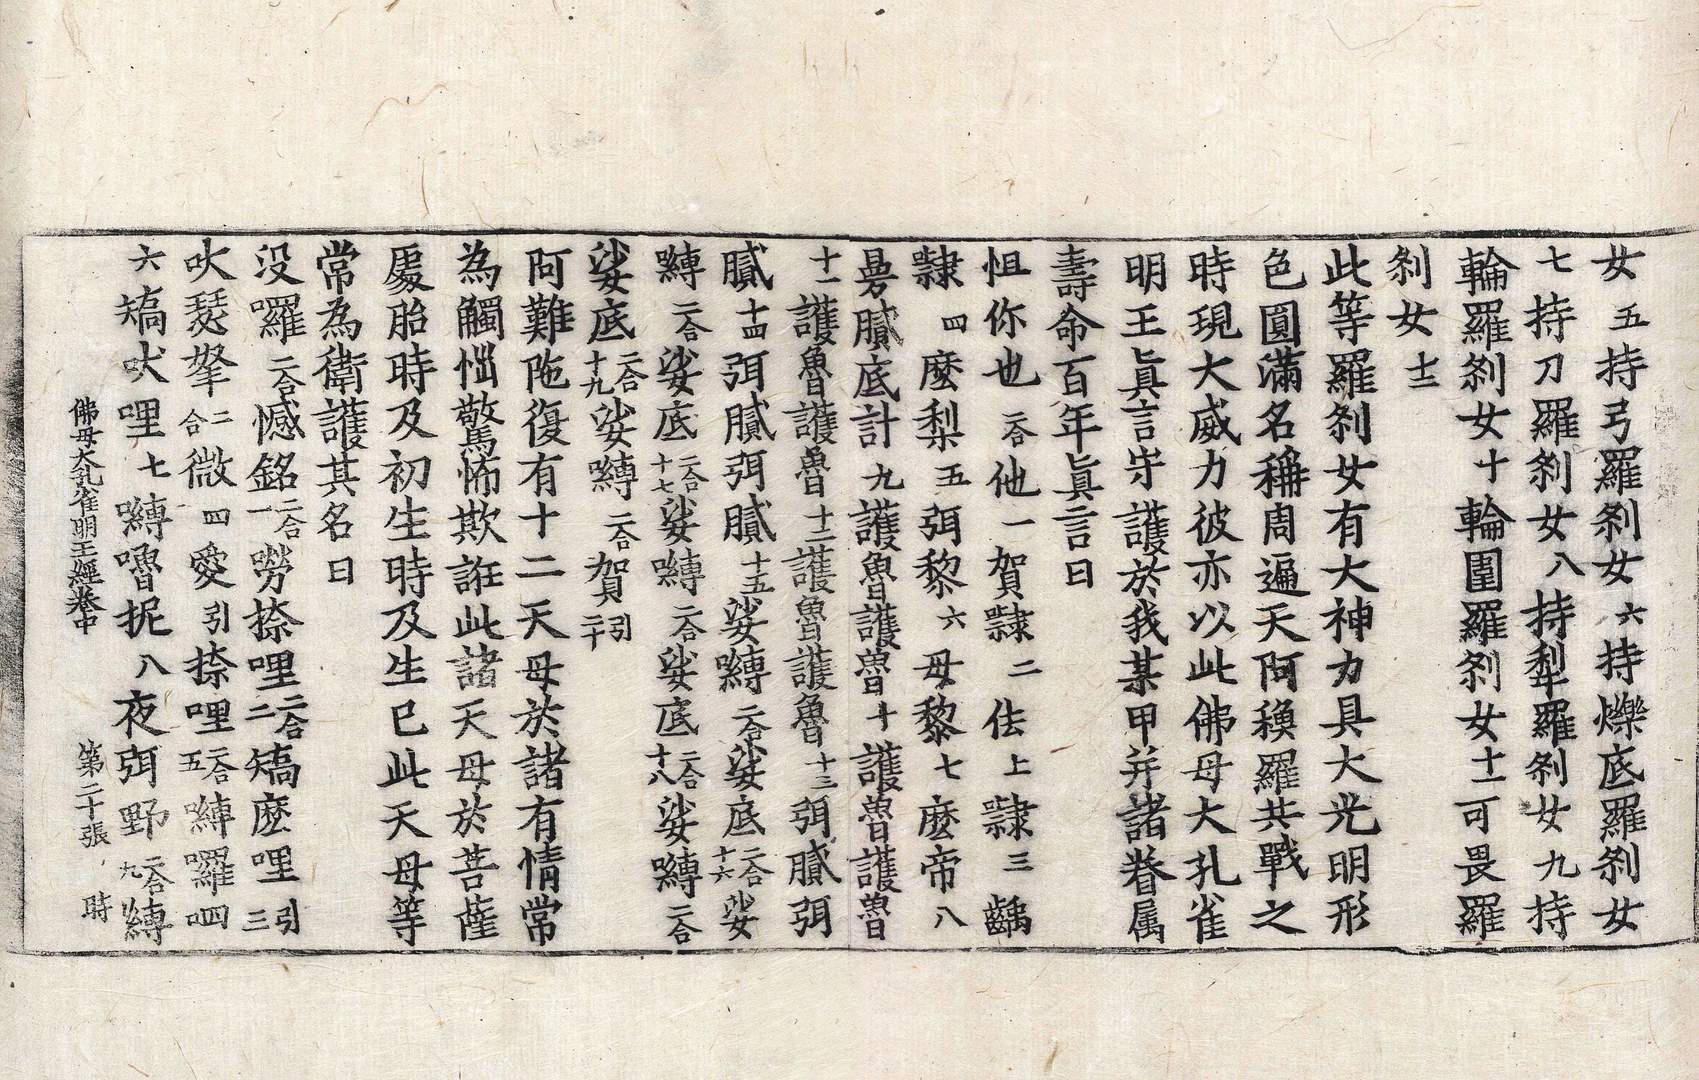 女五持弓羅刹女六持爍底羅刹女
七持刀羅刹女八持犁羅刹女九持
輪羅刹女十輪圍羅刹女十一可畏羅
刹女十二
此等羅刹女有大神力具大光明形
色圓滿名稱周遍天阿穆羅共戰之
時現大威力彼亦以此佛母大孔雀
明王眞言守護於我某甲并諸眷属
壽命百年眞言曰
怛你也二合他一賀隸二佉上隸三齲
隸四麽梨五弭黎六母黎七麽帝八
曼膩底計九護魯護魯十護魯護魯
十一護魯護魯十二護魯護魯十三弭膩弭
膩十四弭膩弭膩十五娑嚩二合娑底二合十六娑
嚩二合娑底二合十七娑嚩二合娑底二合十八娑嚩二合
娑底二合十九娑嚩二合賀引二十
阿難陁復有十二天母於諸有情常
為觸惱驚怖欺誑此諸天母於菩薩
處胎時及初生時及生已此天母等
常為衛護其名曰
没囉二合憾銘二合一嘮捺哩二合二矯麽哩引三
吠瑟拏二合微四愛引捺哩二合五嚩囉呬
六矯吠哩七嚩嚕抳八夜弭野二合九嚩
佛母大孔雀明王經卷中 第二十張 時